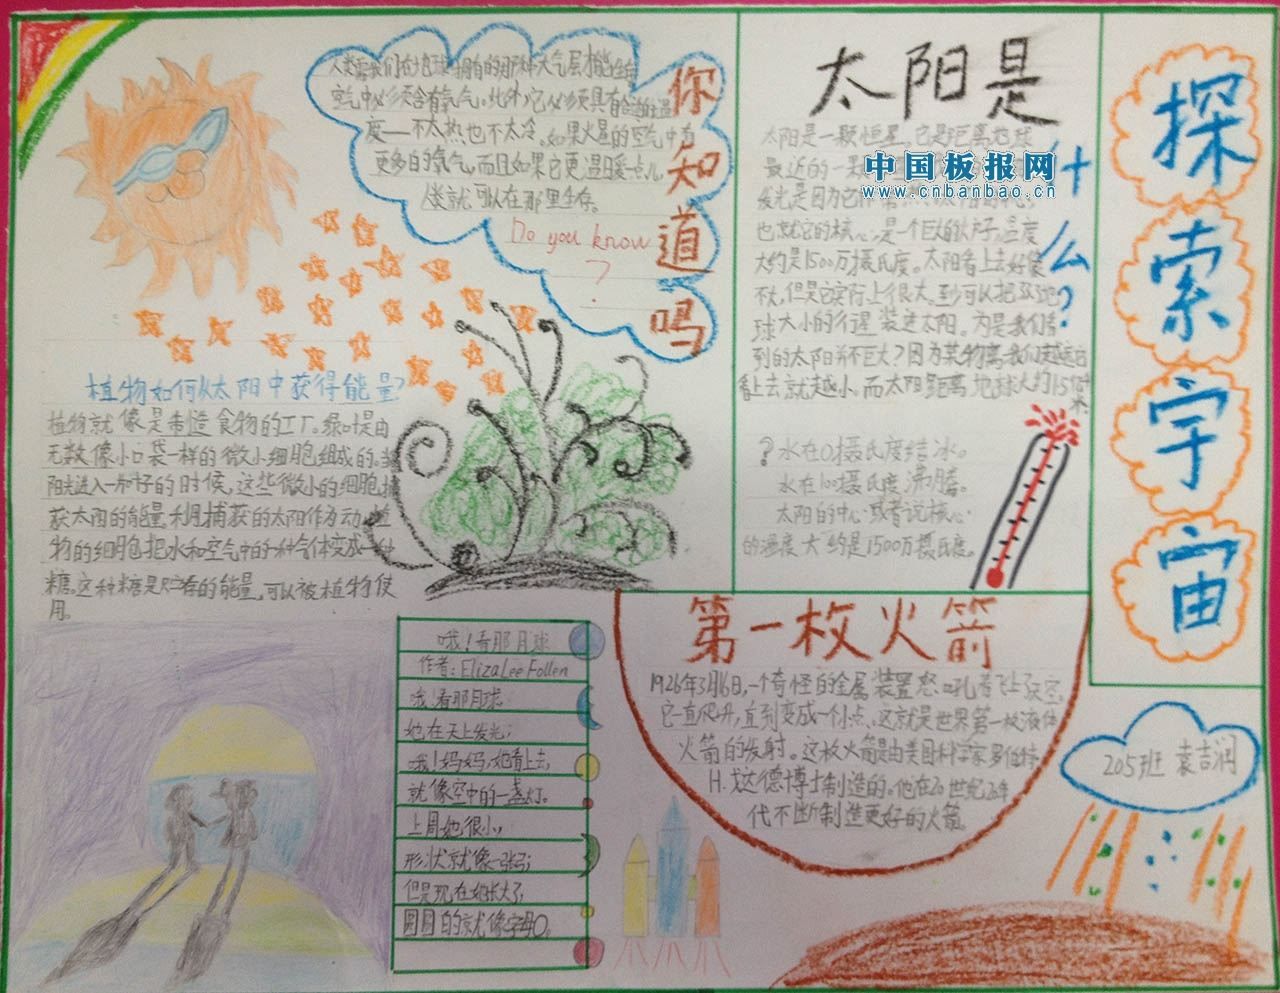 探索宇宙
太阳是
什么?
太阳是一颗恒星,它是距离地球
最近的一
发光是因为它
也就它的核心,是一个巨大的火炉,温度
大约是1500万摄氏度。太阳看上去好像
不大,但是它实际上很大,至少可以把
球大小的行星装进太阳。为是我们看
到的太阳并不巨大?因为某物离我们越远它
看上去就越小,而太阳距离地球大约15亿
米
中国板报网
www.cnbanbao.cn
?水在0摄氏度结冰。
水在100摄氏度沸腾。
太阳的中心或者说核心
的温度大约是1500万摄氏度。
你知道吗
人类需我们在地球拥有的那种大气层才能生存
空气中必须含有氧气。此外,它必须具有合适的温
度——不太热也不太冷。如果火星的空气中有
更多的氧气,而且如果它更温暖一点儿,人
类就可以在那里生存。
Do you know
?
植物如何从太阳中获得能量?
植物就像是制造食物的工厂。绿叶是由
无数像小口袋一样的微小细胞组成的。当
阳光进入一片叶子的时候,这些微小的细胞捕
获太阳的能量。利用捕获的太阳作为动力,植
物的细胞把水和空气中的一种气体变成一种
糖。这种糖是贮存的能量,可以被植物使
用。
哦!看那月球
作者:Eliza Lee Follen
哦,看那月球
她在天上发光;
哦!妈妈,她看上去,
就像空中的一盏灯。
上周她很小,
形状就像一张弓;
但是现在她长大了,
圆圆的就像字母O。
第一枚火箭
1926年3月16日,一个奇怪的金属装置怒吼着飞上了天空,
它一直爬升,直到变成一个小点,这就是世界第一枚液体
火箭的发射。这枚火箭是由美国科学家罗伯特
H.戈达德博士制造的。他在20世纪
代不断制造更好的火箭。
205班 袁吉润